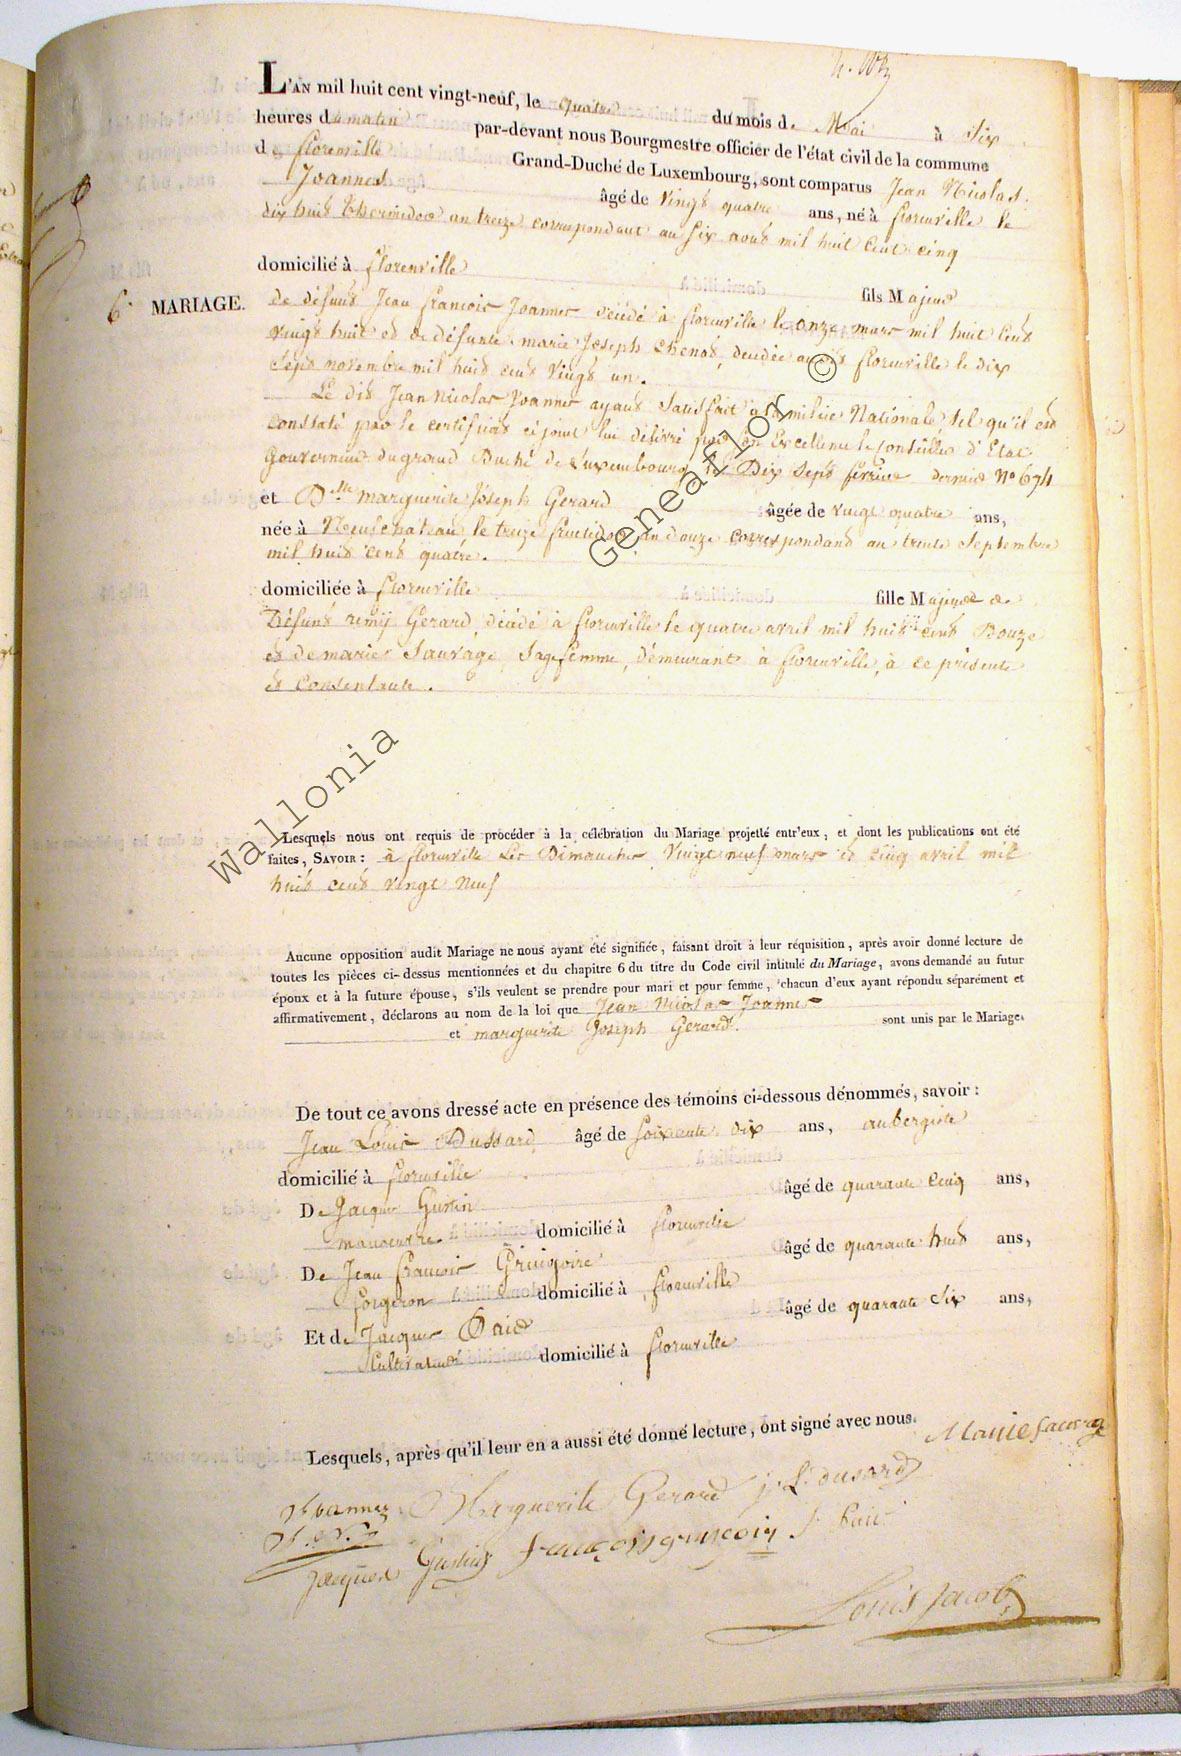 L'AN mil huit cent vingt-neuf, le quatre du mois de Mai à Six
heures du matin par-devant nous Bourgmestre officier de l'état civil de la commune
de florenville Grand-Duché de Luxembourg, sont comparus Jean Nicolas
Joannes âgé de vingt quatre ans, né à florenville le
dix huit thermidor an treize correspondant au Six aout mil huit cent cinq
domicilié à florenville fils Majeur
6e MARIAGE.
de défunt Jean francois Joannes décédé à florenville le onze mars mil huit cent
vingt huit et de défunte marie Joseph Chenot, décédée audit florenville le dix
Sept novembre mil huit cent vingt un.
Le dit Jean Nicolas Joannes ayant Satisfait à la milice Nationale, tel qu'il est
Constaté par le certificat ci joint lui délivré par Son Excellence le Conseiller d'Etat
Gouverneur du grand Duché de Luxembourg, le Dix Sept fevrier dernier No 674
et Dlle marguerite Joseph Gerard âgée de vingt quatre ans,
née à Neufchateau, le treize fructidor an douze Correspondant au trente Septembre
mil huit cent quatre.
domiciliée à florenville fille Majeure de
Défunt remy Gerard, décédé à florenville le quatre avril mil huit cent Douze
et de marie Sauvage Sage femme, demeurant à florenville, à ce présente
et consentante.
Lesquels nous ont requis de procéder à la célébration du Mariage projetté entr'eux, et dont les publications ont été
faites, SAVOIR : à florenville Les Dimanches Vingt neuf mars et cinq avril mil
huit cent vingt neuf
Aucune opposition audit Mariage ne nous ayant été signifiée, faisant droit à leur réquisition, après avoir donné lecture de
toutes les pièces ci-dessus mentionnées et du chapitre 6 du titre du Code civil intitulé du Mariage, avons demandé au futur
époux et à la future épouse, s'ils veulent se prendre pour mari et pour femme, chacun d'eux ayant répondu séparément et
affirmativement, déclarons au nom de la loi que Jean Nicolas Joannes
et marguerite Joseph Gerard. sont unis par le Mariage.
De tout ce avons dressé acte en présence des témoins ci-dessous dénommés, savoir :
Jean Louis Dussard âgé de soixante dix ans, aubergiste
domicilié à florenville
De Jacques Gustin âgé de quarante cinq ans,
manoeuvre domicilié à florenville
De Jean francois Gringoire âgé de quarante huit ans,
forgeron domicilié à florenville
Et de Jacques Pair âgé de quarante Six ans,
Cultivateur domicilié à florenville
Lesquels, après qu'il leur en a aussi été donné lecture, ont signé avec nous. Marie Sauvage
Joannes Marguerite Gerard j. L. dusard
Jacques Gustin françois gringoir
Louis Jacob
Wallonia Geneaflor ©